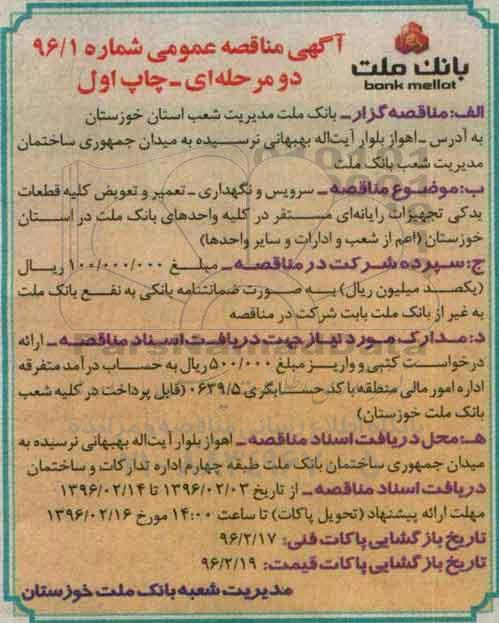 آگهی مناقصه عمومی شماره ۹۶/۱
دو مرحله‌ای ـ چاپ اول
بانک ملت
bank mellat
الف: مناقصه گزار ـ بانک ملت مدیریت شعب استان خوزستان
به آدرس ـ اهواز بلوار آیت‌اله بهبهانی نرسیده به میدان جمهوری ساختمان
مدیریت شعب بانک ملت
ب: موضوع مناقصه ـ سرویس و نگهداری ـ تعمیر و تعویض کلیه قطعات
یدکی تجهیزات رایانه‌ای مستقر در کلیه واحدهای بانک ملت در استان
خوزستان (اعم از شعب و ادارات و سایر واحدها)
ج: سپرده شرکت در مناقصه ـ مبلغ ۱۰۰/۰۰۰/۰۰۰ ریال
(یکصد میلیون ریال) به صورت ضمانتنامه بانکی به نفع بانک ملت
به غیر از بانک ملت بابت شرکت در مناقصه
د: مدارک مورد نیاز جهت دریافت اسناد مناقصه ـ ارائه
درخواست کتبی و واریز مبلغ ۵۰۰/۰۰۰ ریال به حساب درآمد متفرقه
اداره امور مالی منطقه با کد حسابگری ۰۶۳۹/۵ (قابل پرداخت در کلیه شعب
بانک ملت خوزستان)
هـ: محل دریافت اسناد مناقصه ـ اهواز بلوار آیت‌اله بهبهانی نرسیده به
میدان جمهوری ساختمان بانک ملت طبقه چهارم اداره تدارکات و ساختمان
دریافت اسناد مناقصه ـ از تاریخ ۱۳۹۶/۰۲/۰۳ تا ۱۳۹۶/۰۲/۱۴
مهلت ارائه پیشنهاد (تحویل پاکات) تا ساعت ۱۴:۰۰ مورخ ۱۳۹۶/۰۲/۱۶
تاریخ بازگشایی پاکات فنی: ۹۶/۲/۱۷
تاریخ بازگشایی پاکات قیمت: ۹۶/۲/۱۹
مدیریت شعبه بانک ملت خوزستان